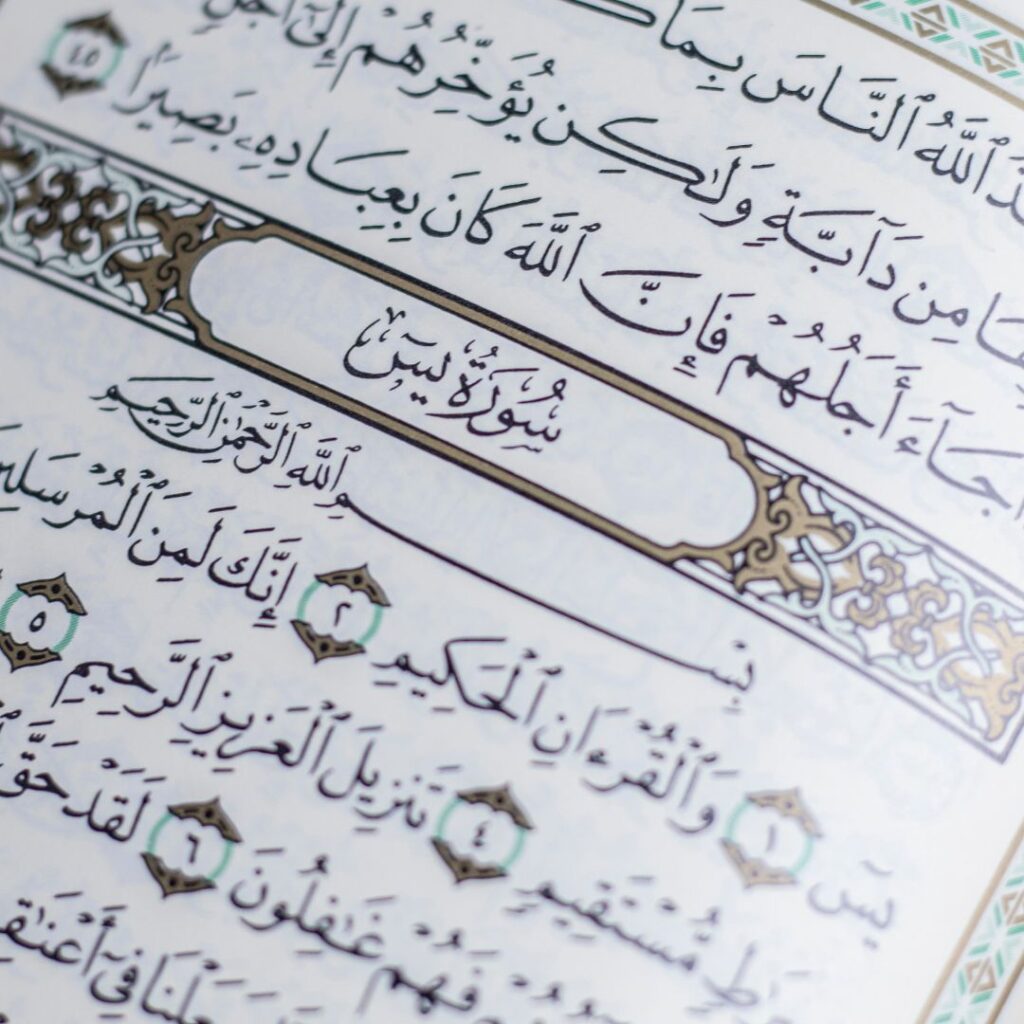 ٱللَّهُ ٱلنَّاسَ بِمَا
مِن دَآبَّةٍ وَلَٰكِن يُؤَخِّرُهُمْ إِلَىٰٓ أَجَلٍ
جَآءَ أَجَلُهُمْ فَإِنَّ ٱللَّهَ كَانَ بِعِبَادِهِۦ بَصِيرًا ٤٥
سُورَةُ يسٓ
بِسْمِ ٱللَّهِ ٱلرَّحْمَٰنِ ٱلرَّحِيمِ
يسٓ ١ وَٱلْقُرْءَانِ ٱلْحَكِيمِ ٢ إِنَّكَ لَمِنَ ٱلْمُرْسَلِينَ
مُّسْتَقِيمٍ ٤ تَنزِيلَ ٱلْعَزِيزِ ٱلرَّحِيمِ ٥
فَهُمْ غَٰفِلُونَ ٦ لَقَدْ حَقَّ
فِىٓ